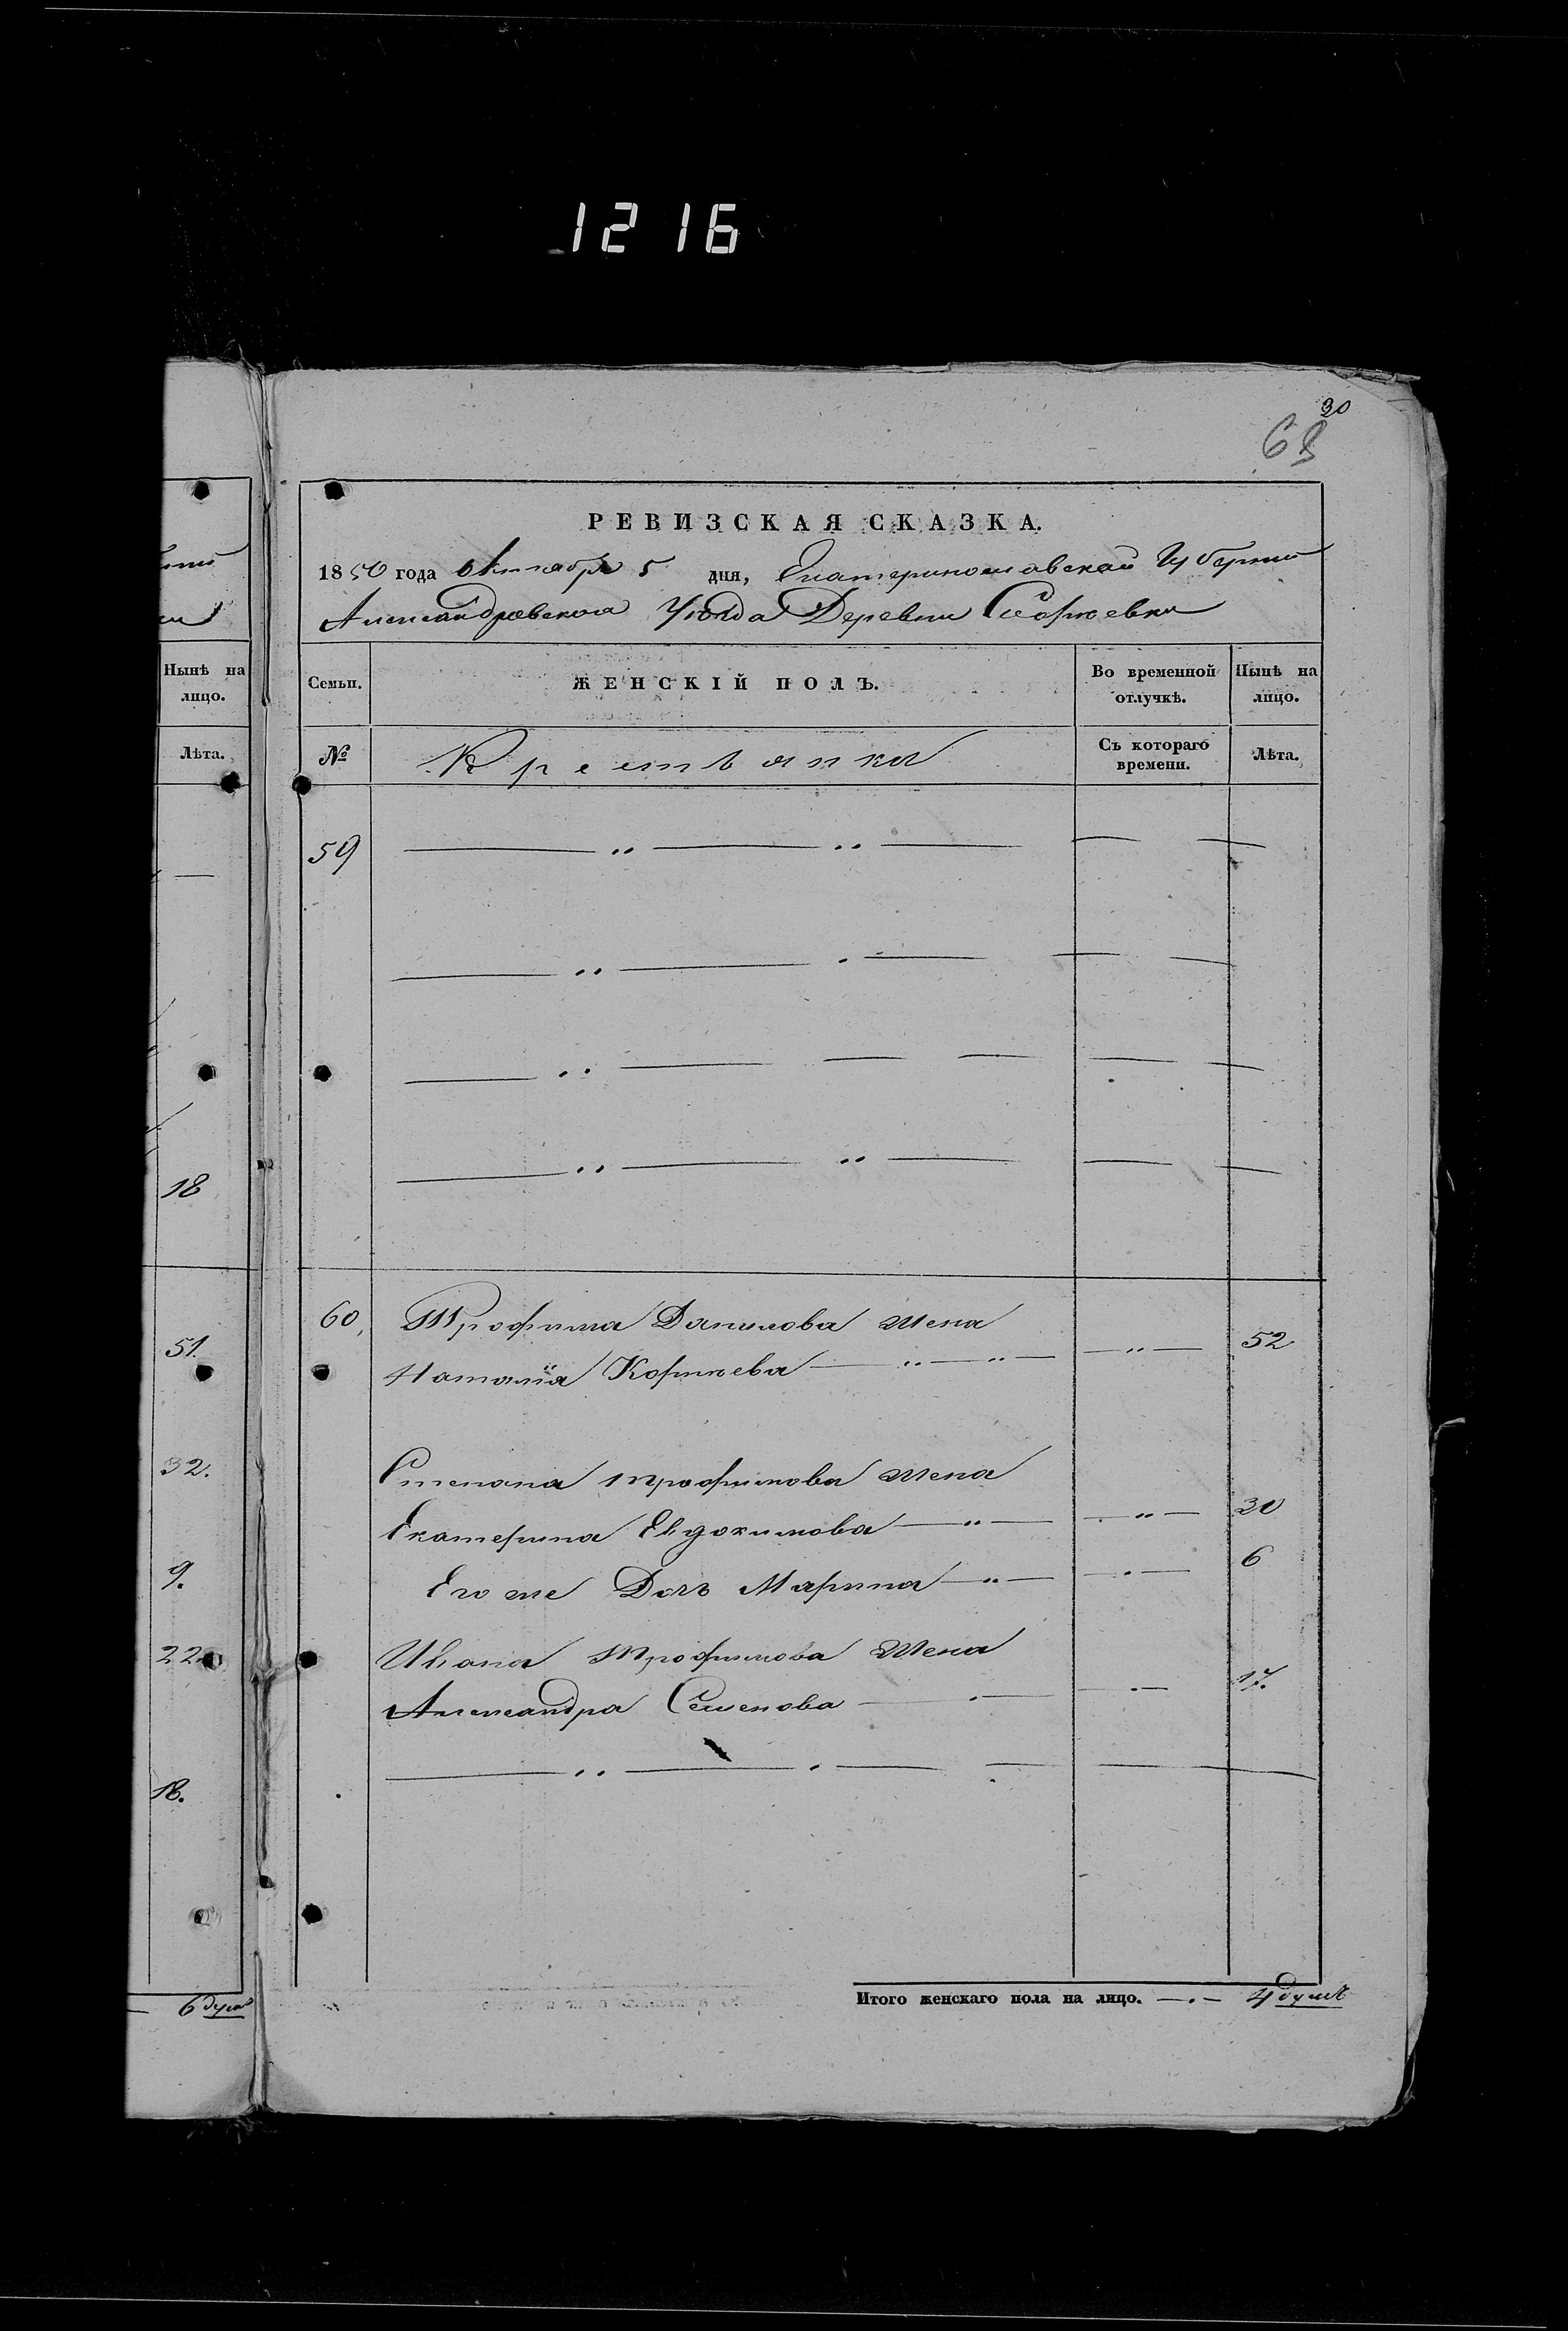 1216
30
63
РЕВИЗСКАЯ СКАЗКА.
1850 года Октября 5 дня, Екатеринославской Губернии
Александровскаго Уѣзда Деревни
Нынѣ на лицо.
Лѣта.
Семьи. ЖЕНСКІЙ ПОЛЪ. Во временной отлучкѣ. Нынѣ на лицо.
№ Крестьянка Съ котораго времени. Лѣта.
59
18
60, Трофима Данилова жена
51. Наталія Корнѣева 52
32. Степана Трофимова жена
Екатерина Евдокимова 30
9. Его же Дочь Марина 6
22. Ивана Трофимова жена
Александра Семенова 17.
18.
6 душъ
Итого женскаго пола на лицо. 4 душѣ